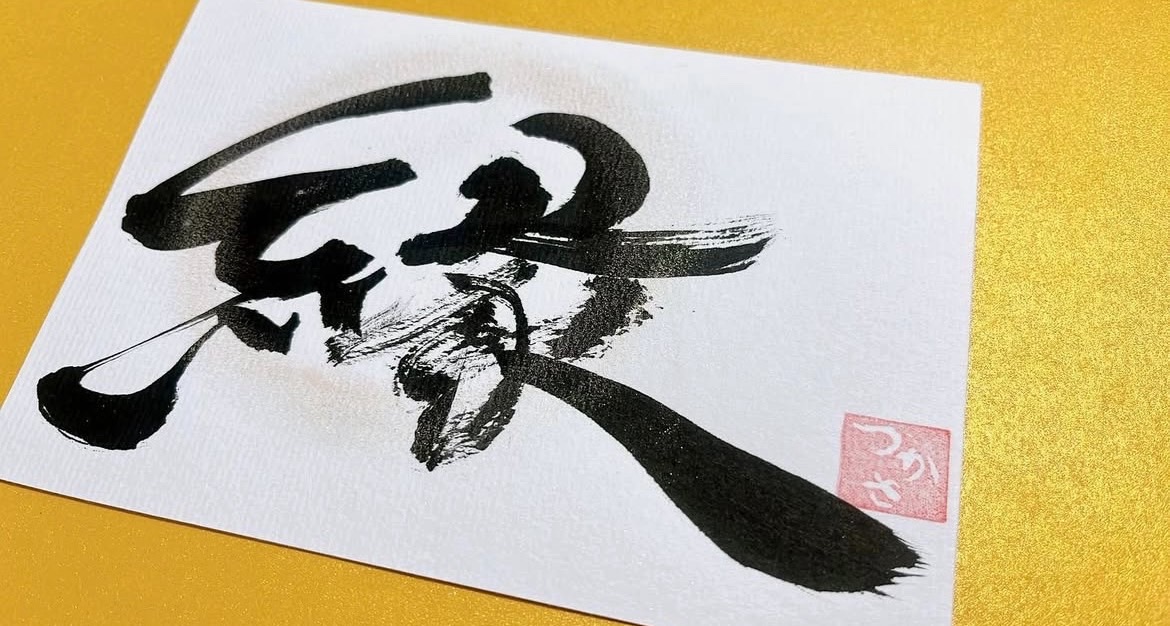 縁
つかさ